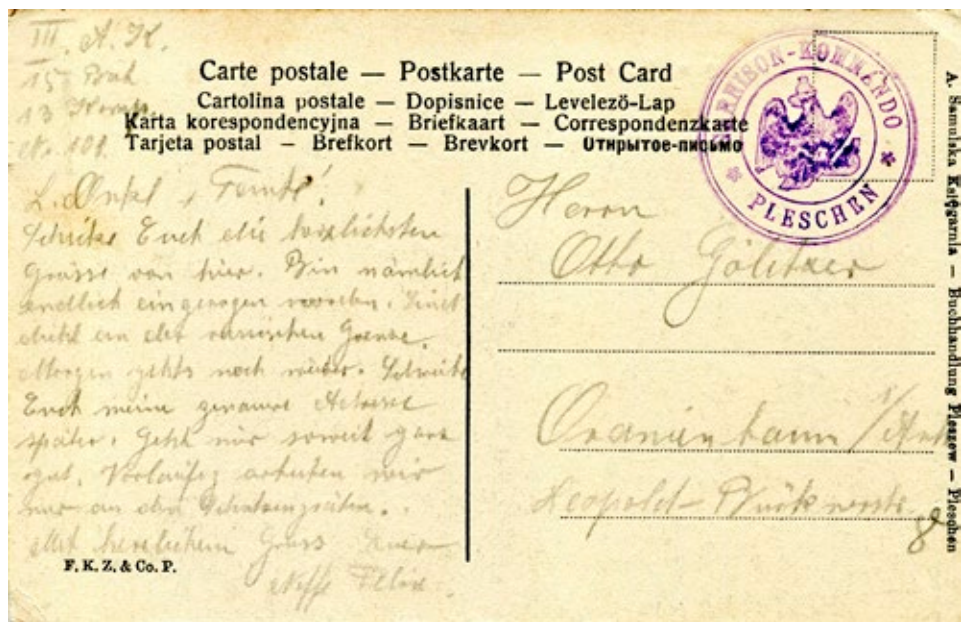 III. A. K.
13 Komp.
Nr. 101.
Carte postale — Postkarte — Post Card
Cartolina postale — Dopisnice — Levelező-Lap
Karta korespondencyjna — Briefkaart — Correspondenzkarte
Tarjeta postal — Brefkort — Brevkort — Открытое-письмо
GARNISON-KOMMANDO
* PLESCHEN *
L. Onkel u. Tante!
Schicke Euch die herzlichsten
Grüsse von hier. Bin nämlich
endlich eingezogen worden. Sind
dicht an der russischen Grenze.
Morgen gehts noch weiter. Schreibe
Euch meine genaue Adresse
später. Geht mir soweit ganz
gut. Vorläufig arbeiten wir
nur an den Schützengräben.
Mit herzlichem Gruss Euer
Neffe Felix.
F. K. Z. & Co. P.
Herrn
Otto
Oranienbaum /Anh
Leopold
8
A. Samulska Księgarnia — Buchhandlung Pleszew — Pleschen